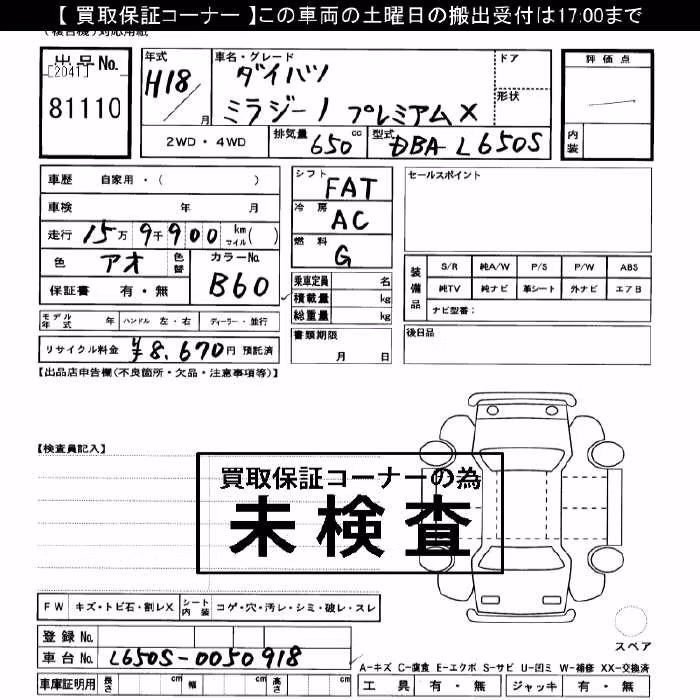 【 買取保証コーナー 】この車両の土曜日の搬出受付は17:00まで
出品No.
[2041]
81110
年式
H18/
月
車名・グレード
ダイハツ
ミラジーノ プレミアムX
ドア
形状
評価点
内装
2WD・4WD
排気量 650 cc
型式 DBA-L650S
車歴 自家用・( )
車検 年 月
走行 15万 9千 900 km マイル ( )
色 アオ 色替
カラーNo. B60
保証書 有・無
シフト FAT
冷房 AC
燃料 G
乗車定員 名
積載量 kg
総重量 kg
セールスポイント
装備品
S/R 純A/W P/S P/W ABS
純TV 純ナビ 革シート 外ナビ エアB
ナビ型番:
モデル年式 年 ハンドル 左・右 ディーラー・並行
書類期限
月 日
後日品
リサイクル料金 ¥8,670円 預託済
【出品店申告欄(不良箇所・欠品・注意事項等)】
【検査員記入】
買取保証コーナーの為
未検査
FW キズ・トビ石・割レX シート内装 コゲ・穴・汚レ・シミ・破レ・スレ
登録No.
車台No. L650S-0050918
スペア
A-キズ C-腐食 E-エクボ S-サビ U-凹ミ W-補修 XX-交換済
車庫証明用 長さ cm 幅 cm 高さ cm
工具 有・無 ジャッキ 有・無